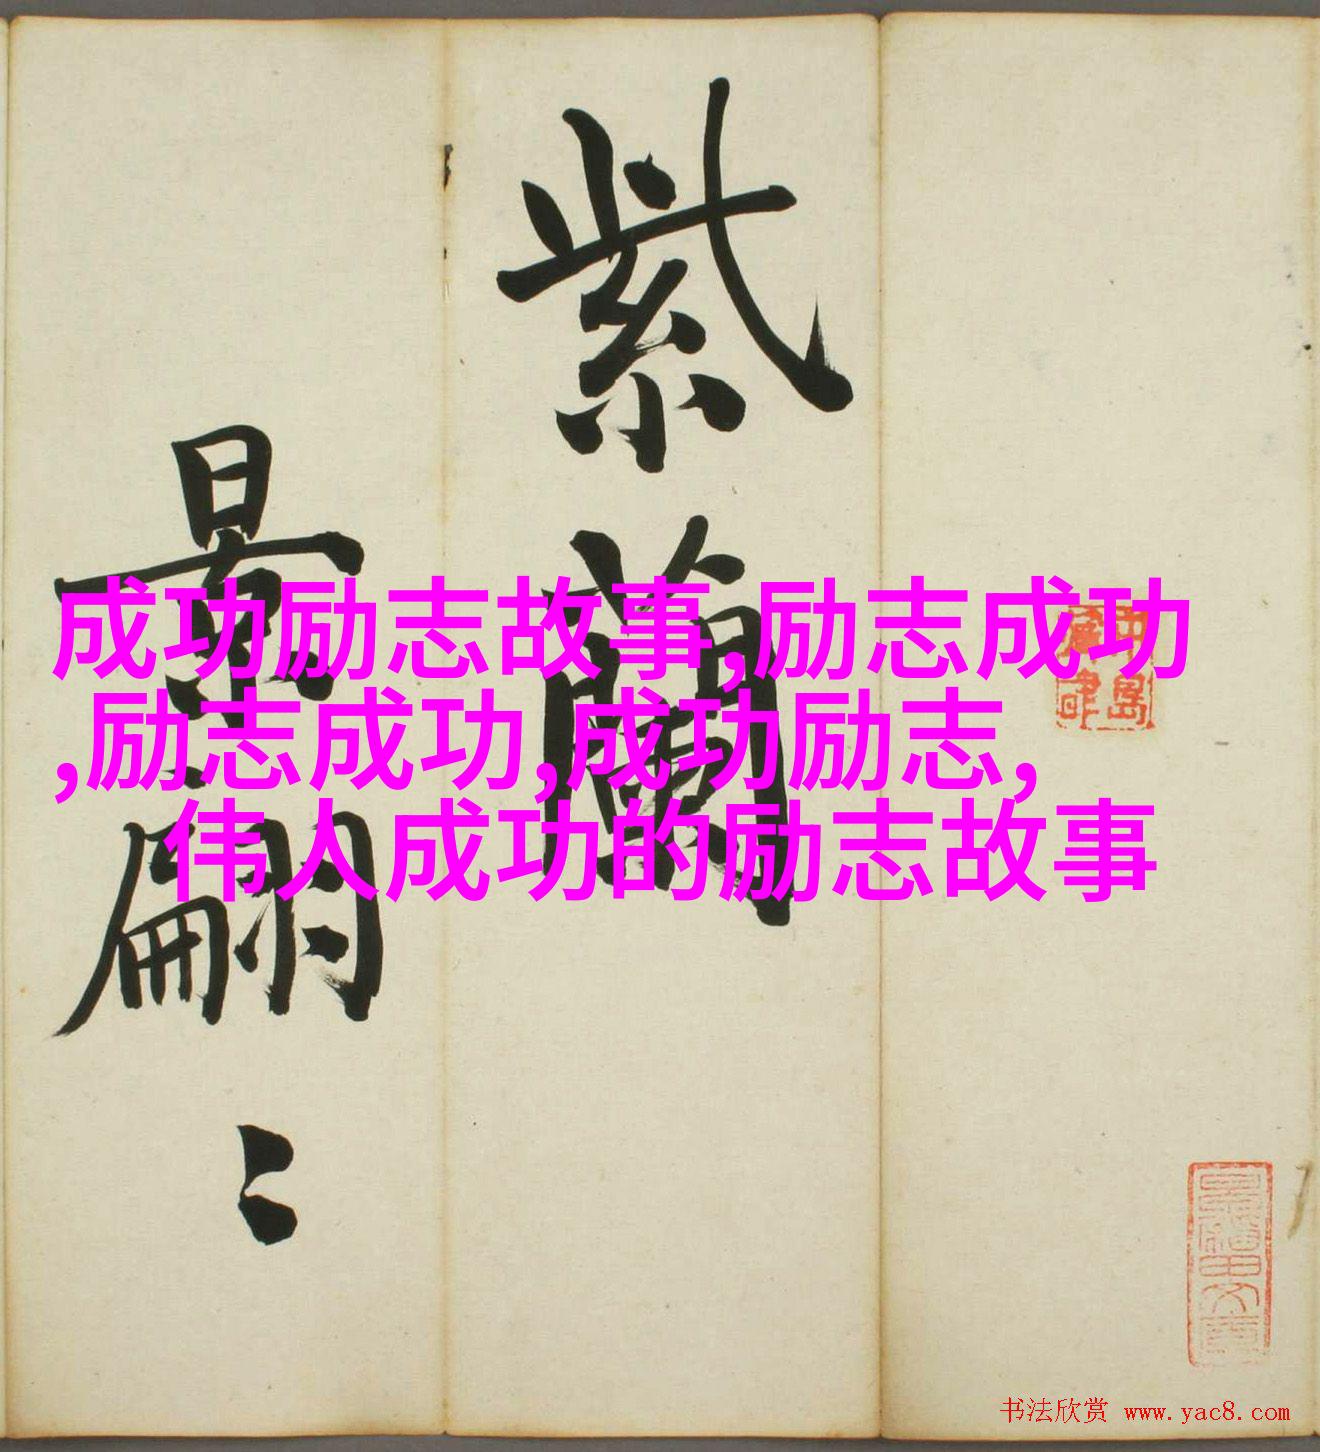 成功励志故事,励志成功
,励志成功,成功励志,
伟人成功的励志故事
紫蘭
景翩〻
书法欣赏 www.yac8.com